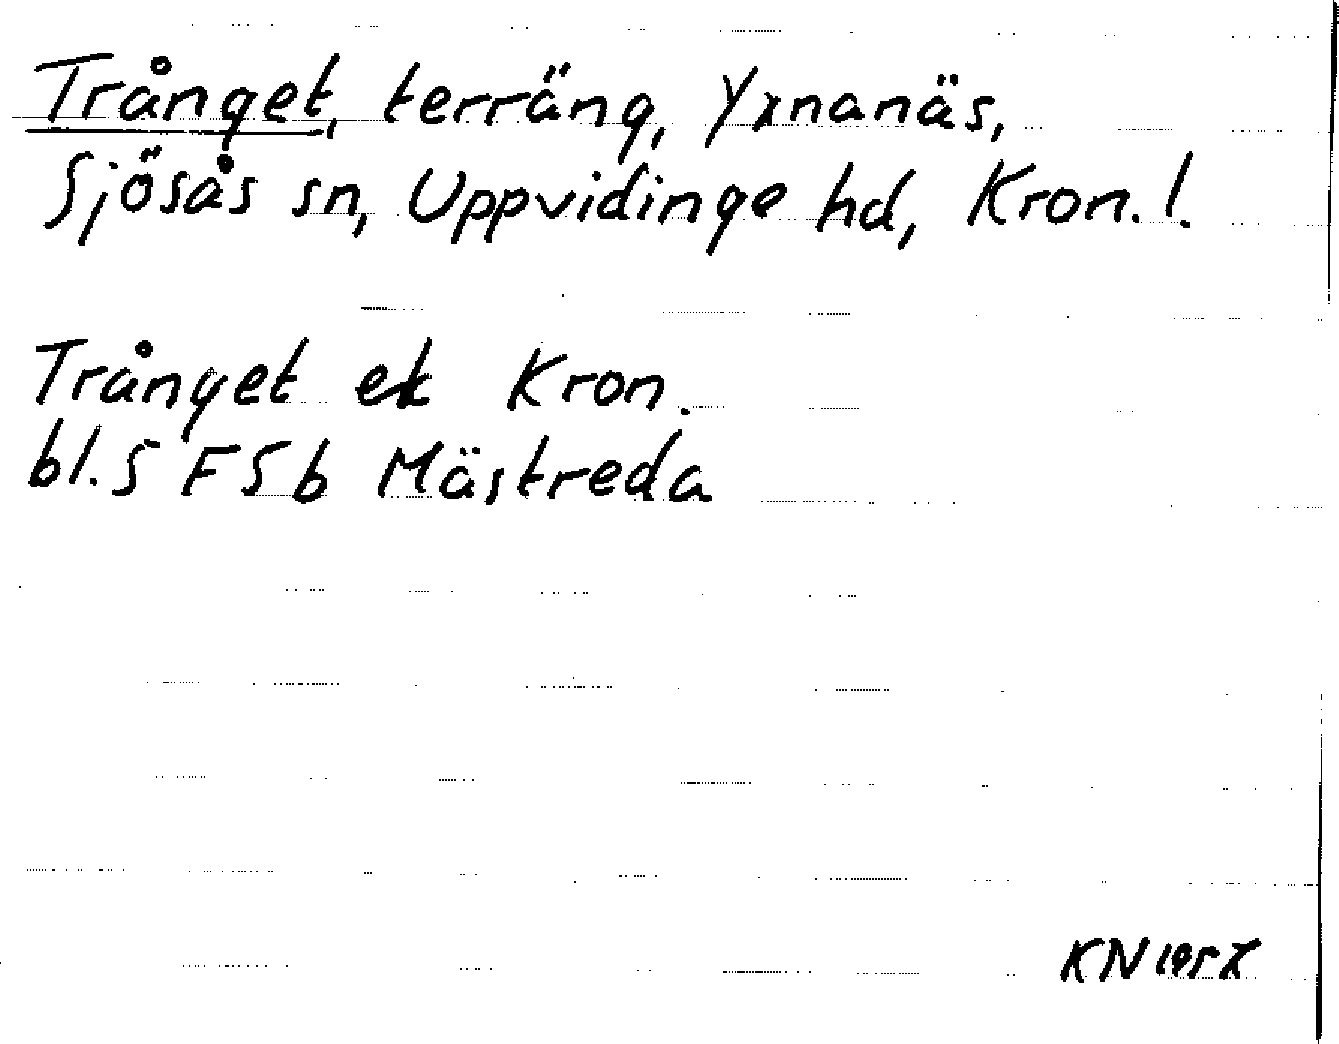 Trånget, terräng, Yxnanäs,
Sjösås sn, Uppvidinge hd, Kron. l.
Trånget ek Kron.
bl. 5 F 5 b Mästreda
KN 1957